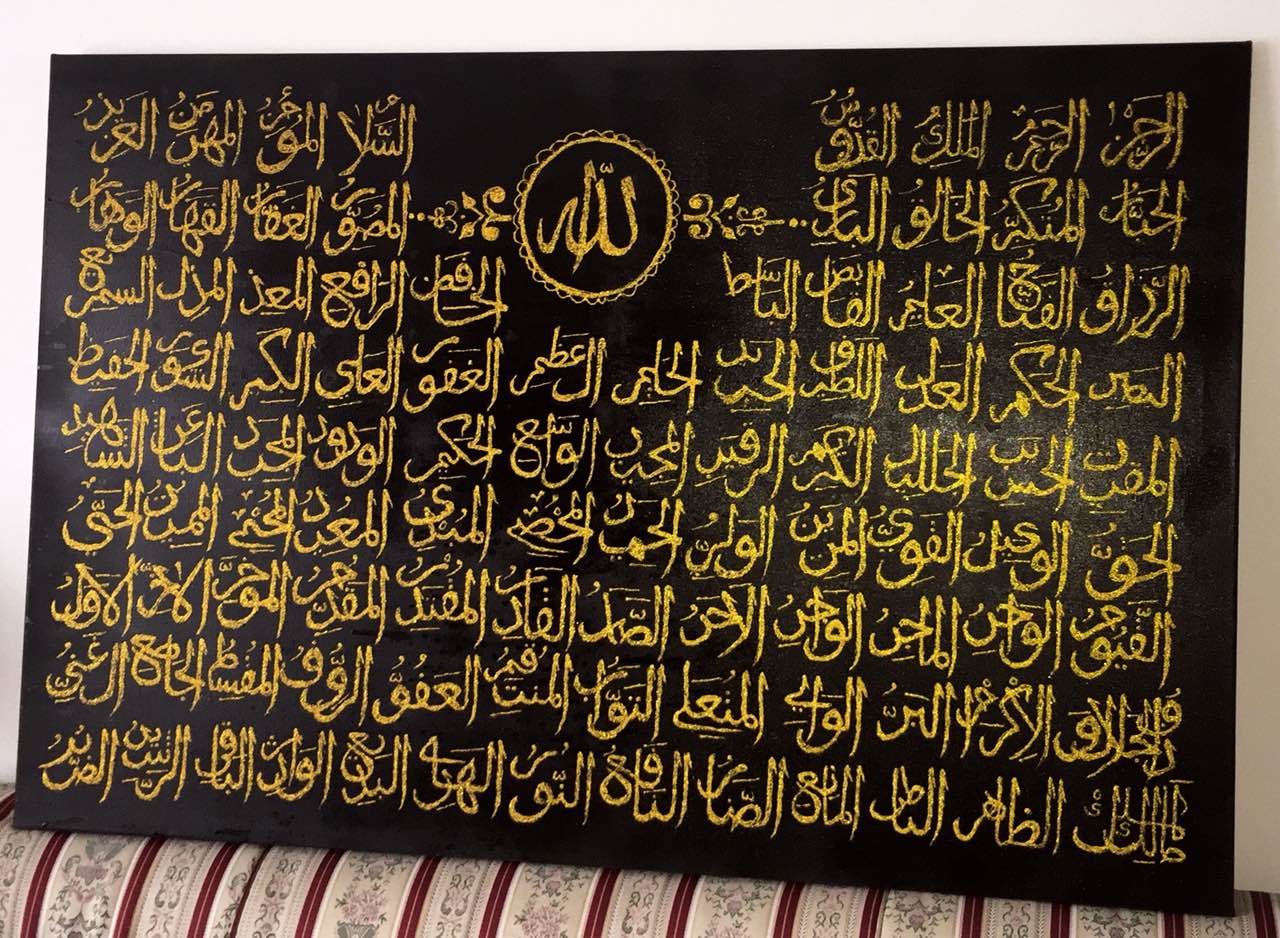 الرحمن الرحيم الملك القدوس السلا المؤمن المهيمن العزيز
الجبار المتكبر الخالق البارئ الله المصور الغفار القهار الوهاب
الرزاق الفتاح القابض الباسط الخافض الرافع المعز المذل السميع
البصير الحكم العدل اللطيف الحليم العظيم الغفور العلي الكبير الحفيظ
المقيت الحسيب الكريم الرقيب المجيب الواسع الحكيم الودود المجيد الباعث الشهيد
الحق الوكيل القوي المتين الولي الحميد المحصي المبدئ المعيد المحيي المميت الحي
القيوم الواجد الماجد الواحد الاحد الصمد القادر المقتدر المقدم المؤخر الأول
البر التواب المنتقم العفو الرؤوف المقسط الجامع الغني
الظاهر الباطن المانع الضار النافع النور البديع الوارث الباقي